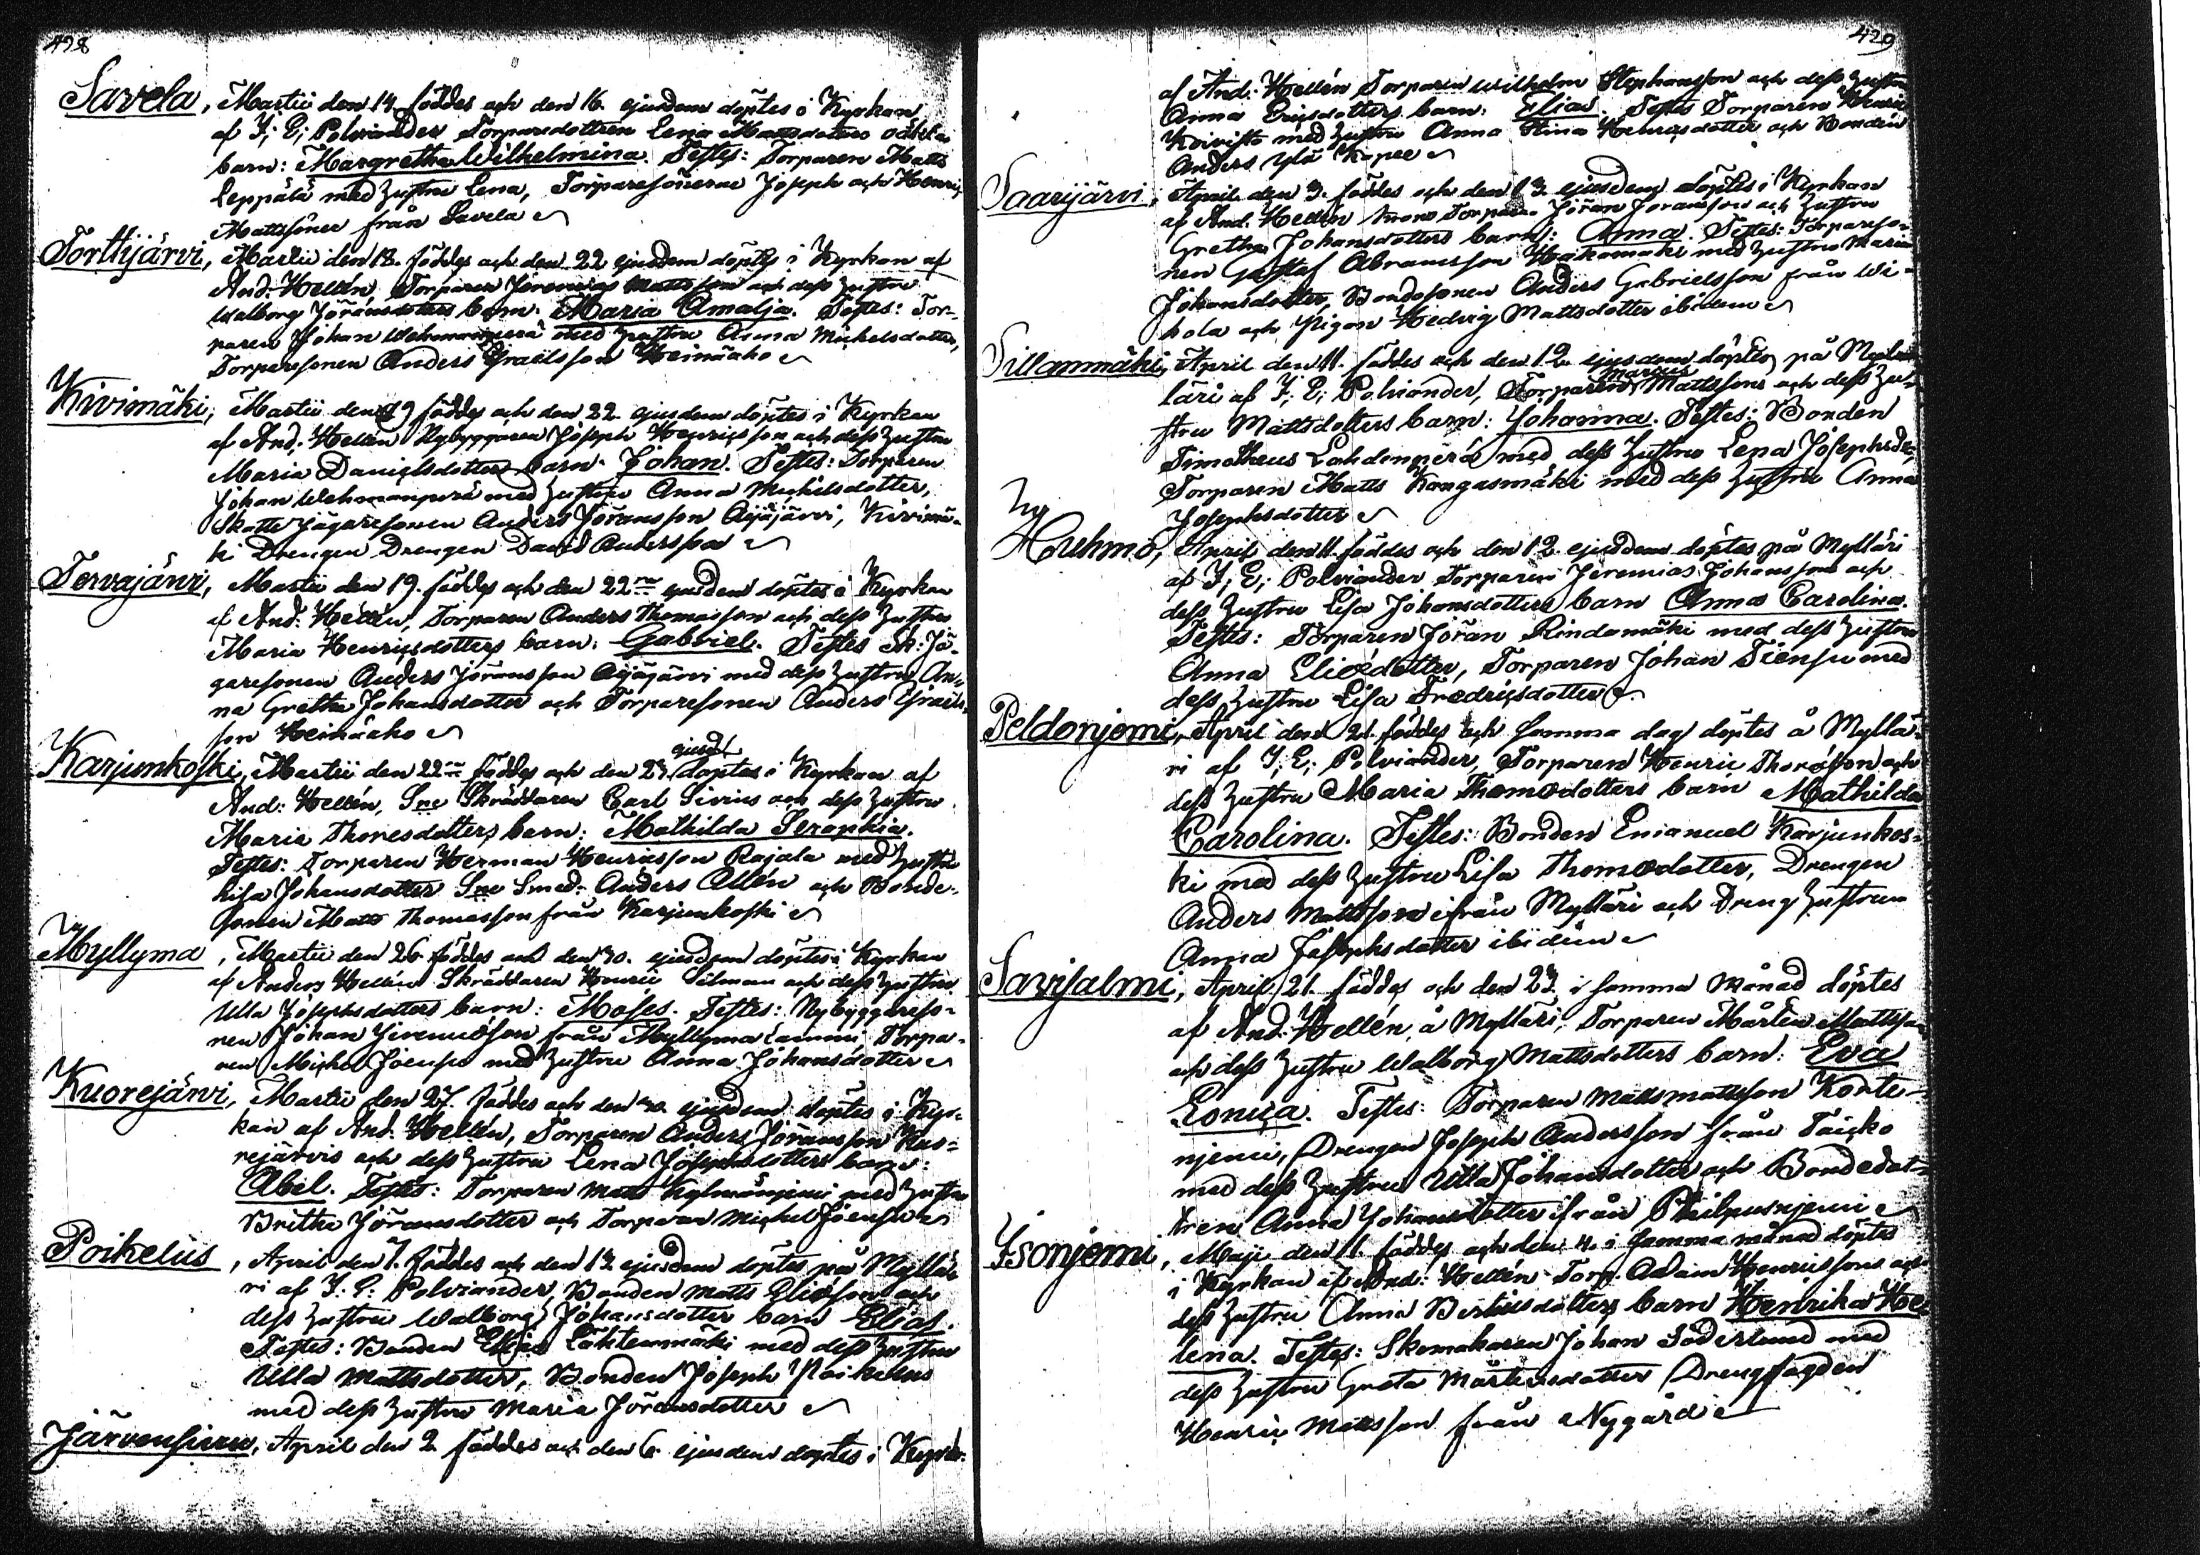 428
Savela, Martii den 14. föddes och den 16. ejusdem döptes i Kyrkan
af J; E; Polviander Torparedottren Lena Mattsdotters oäkta
barn: Margretha Wilhelmina. Testes: Torparen Matts
Leppälä med hustru Lena, Torparesönerne Joseph och Henric
Mattssöner från Savela
Torttijärvi, Martii den 18. föddes och den 22 ejusdem döptes i Kyrkan af
And. Hellén, Torparen Jeremias Mattsson och dess hustru
Walborg Jöransdotters barn: Maria Amalja. Testes: Tor-
paren Johan Wehmanperä med hustru Anna Michelsdotter,
Torparesonen Anders Israelsson Heinäaho
Kivimäki, Martii den 19 föddes och den 22 ejusdem döptes i Kyrkan
af And. Hellén Nybyggaren Joseph Henricsson och dess hustru
Maria Danielsdotters barn: Johan. Testes: Torparen
Johan Wehmanperä med hustru Anna Michelsdotter,
Skatte Jägaresonen Anders Jöransson Äijäjärvi, Kivimä-
ki Drengen Drengen David Andersson
Tervajärvi, Martii den 19. föddes och den 22ne ejusdem döptes i Kyrkan
af And. Hellén, Torparen Anders Thomasson och dess hustru
Maria Henricsdotters barn: Gabriel. Testes Sk: Jä-
garesonen Anders Jöransson Äijäjärvi med dess hustru An-
na Gretha Johansdotter och Torparesonen Anders Israels-
son Heinäaho
Karjunkoski, Martii den 22ne föddes och den 23 ejusd: döptes i Kyrkan af
And: Hellén, Sne Skräddaren Carl Sirius och dess hustru
Maria Thomesdotters barn: Mathilda Seraphia.
Testes: Torparen Herman Henricsson Rajala med hustru
Lisa Johansdotter Sne Smed: Anders Allén och Bonde-
sonen Matts Thomasson från Karjunkoski
Myllyma, Martii den 26 föddes och den 30. ejusdem döptes i Kyrkan
af Anders Hellén Skräddaren Henric Silman och dess hustru
Ulla Josephsdotters barn: Moses. Testes: Nybyggareso-
nen Johan Jeremiæson från Myllyma Lammi, Torpa-
ren Michel Joensu med hustru Anna Johansdotter
Kuorejärvi, Martii den 27. föddes och den 30. ejusdem döptes i Kyr-
kan af And. Hellén, Torparen Anders Jöransson Kuo-
rejärvis och dess hustru Lena Josephsdotters barn:
Abel. Testes: Torparen Matts Kylmänjemi med hustru
Britha Jöransdotter och Torparen Michel Joensu
Poikelus, April den 7. föddes och den 12 ejusdem döptes på Myllä-
ri af J. E: Polviander, Bonden Matts Eliæson och
dess hustru Walborg Johansdotters barn Elias.
Testes: Bonden Elias Lähtenmäki med dess hustru
Ulla Mattsdotter, Bonden Joseph Poikelus
med dess hustru Maria Jöransdotter
Järvensuu, April den 2. föddes och den 6 ejusdem döptes i Kyrkan
429
af And. Hellén Torparen Wilhelm Stephansson och dess hustru
Anna Ericsdotters barn: Elias. Testes Torparen Henric
Koivisto med hustru Anna Stina Henricsdotter och Bonden
Anders Ylä Kapee
Saarijärvi, April den 3. föddes och den 13. ejusdem döptes i Kyrkan
af And. Hellén Torparen Jöran Jöransson och hustru
Gretha Johansdotters barn: Anna. Testes: Torpareso-
nen Gustaf Abramsson Hakomäki med hustru Maria
Johansdotter, Bondesonen Anders Gabrielsson från Wi-
kola och Pigan Hedvig Mattsdotter ibidem
Sillanmäki, April den 11. föddes och den 12 ejusdem döptes på Myl-
läri af J. E: Polviander, Torparen Marcus Mattssons och dess hu-
stru Mattsdotters barn: Johanna. Testes: Bonden
Timotheus Lahdenperä med dess hustru Lena Josephsdr,
Torparen Matts Kangasmäki med dess hustru Anna
Josephsdotter
Ny
Huhmo, April den 11. föddes och den 12 ejusdem döptes på Mylläri
af J; E; Polviander Torparen Jeremias Johansson och
dess hustru Lisa Johansdotters barn Anna Carolina.
Testes: Torparen Jöran Rindamäki med dess hustru
Anna Eliædotter, Torparen Johan Tiensu med
dess hustru Lisa Fredricsdotter
Peldonjemi, April den 21. föddes och samma dag döptes å Myllä-
ri af J; E; Polviander, Torparen Henric Thomæson och
dess hustru Maria Thomædotters barn Mathilda
Carolina. Testes: Bonden Emanuel Karjunkos-
ki med dess hustru Lisa Thomædotter, Drengen
Anders Mattsson ifrån Mylläri och Dreng hustrun
Anna Josephsdotter ibidem
Savisalmi, April 21. föddes och den 23. i samma månad döptes
af And. Hellén, å Mylläri, Torparen Mårten Mattsson
och dess hustru Walborg Mattsdotters barn: Eva
Lovisa. Testes: Torparen Matts Mattsson Korte-
njemi, Drengen Joseph Andersson från Taicko
med dess hustru Ulla Johansdotter och Bondedot-
tren Anna Johansdotter ifrån Philpusnjemi
Isonjemi, Maji den 11. föddes och den 4. i samma månad döptes
i Kyrkan af And: Hellén Torp. Adam Henricssons och
dess hustru Anna Bertilsdotters barn Henrika He-
lena. Testes: Skomakaren Johan Söderlund med
dess hustru Greta Mårtensdotter Drengfogden
Henric Mattsson från Nygård